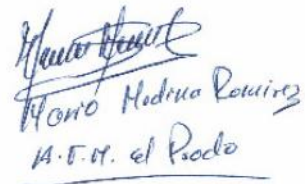 Mario Medina Ramirez
A.T.M. el Prado